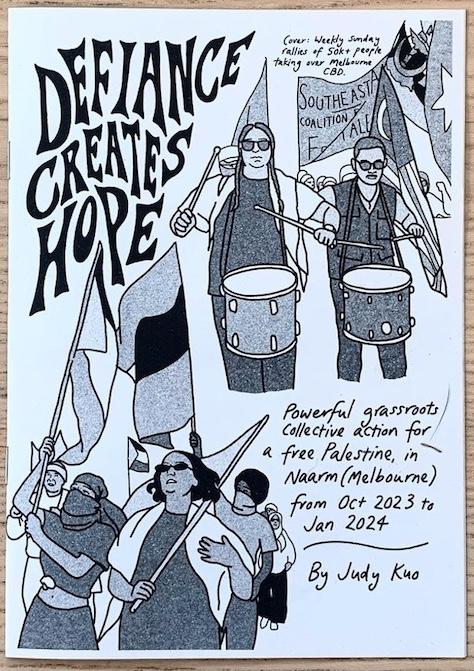 DEFIANCE
CREATES
HOPE
Cover: Weekly Sunday
rallies of 50k+ people
taking over Melbourne
CBD.
SOUTHEAST
COALITION
F
Powerful grassroots
collective action for
a free Palestine, in
Naarm (Melbourne)
from Oct 2023 to
Jan 2024
By Judy Kuo